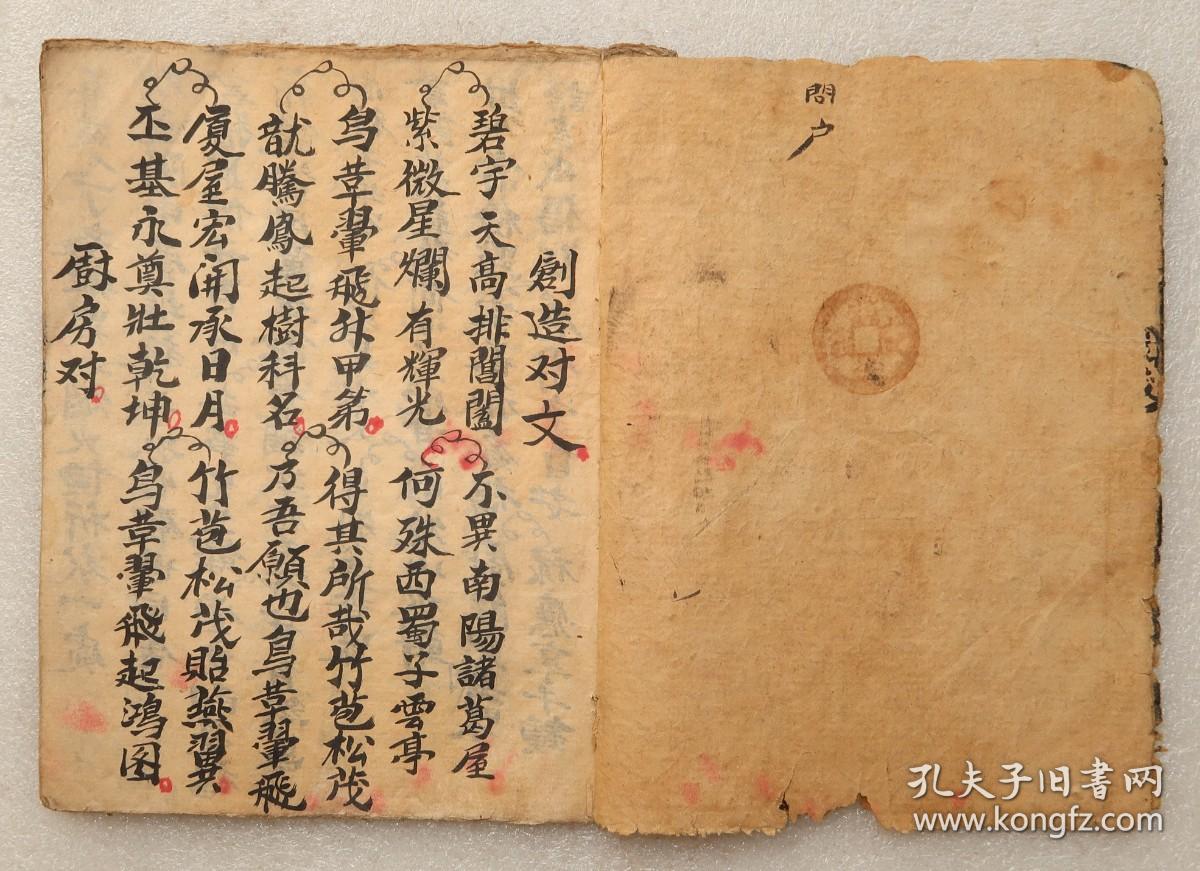 問戶
創造对文
碧宇天高排閶闔
紫微星爛有輝光
不異南陽諸葛屋
何殊西蜀子雲亭
鳥革翬飛升甲第
龍騰鳳起樹科名
得其所哉竹苞松茂
乃吾願也鳥革翬飛
厦屋宏開承日月
丕基永奠壯乾坤
竹苞松茂貽燕翼
鳥革翬飛起鴻图
廚房对
孔夫子旧书网
www.kongfz.com